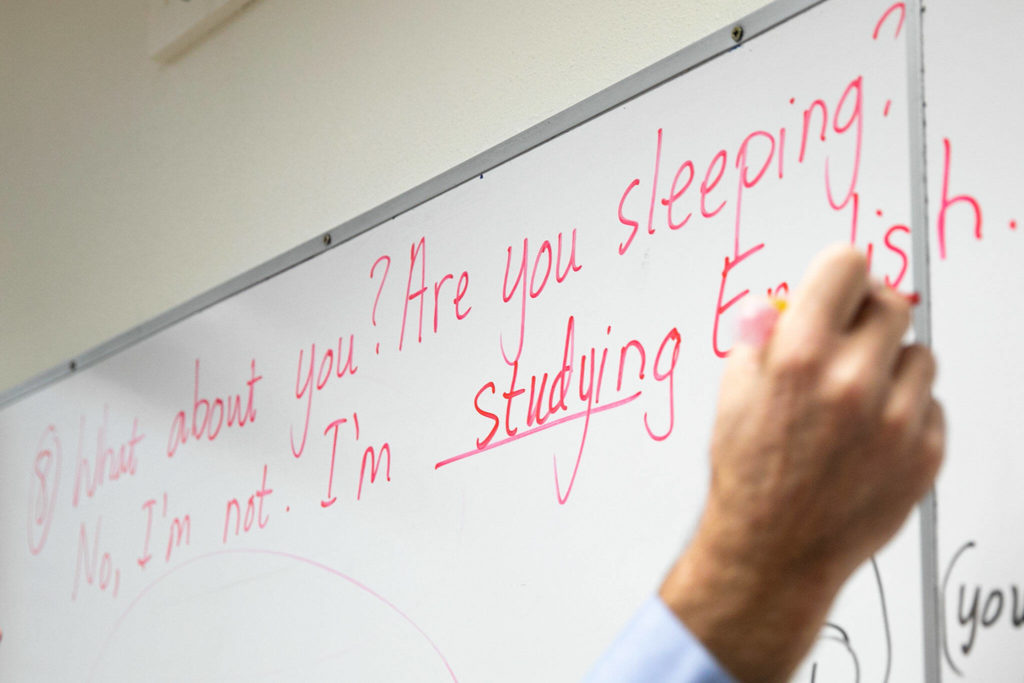 ⑧ What about you? Are you sleeping?
No, I'm not. I'm studying English.
(you